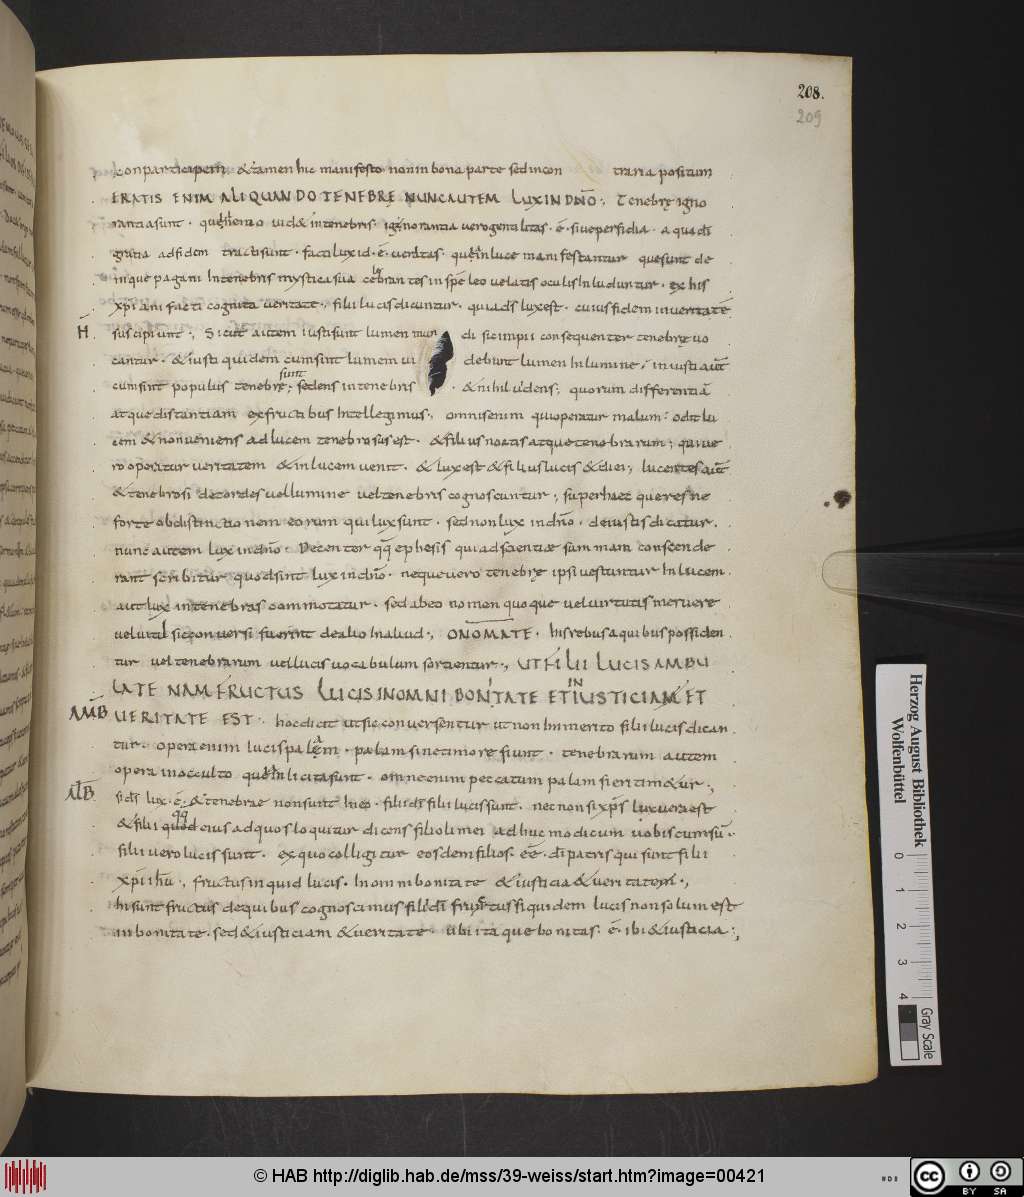 208.
209
conparticipem &tamen hic manifesto non in bona parte sed in con traria positum
ERATIS ENIM ALIQUANDO TENEBRĘ NUNC AUTEM LUX IN DNO; Tenebrę igno
rantia sunt
gratia ad fidem tracti sunt · facti lux id · ē · veritas · in luce manifestantur quę sunt de
nique pagani In tenebris mystica sua celebrantes in velatis oculis Inluduntur · ex his
xp̄iani facti cognita veritate · filii lucis dicuntur · quia ds̄ lux est · cuius fidem in veritatē
H̄
suscipiunt; Sicut autem iusti sunt lumen mun di sic impii consequenter tenebrę vo
cantur · & iusti quidem cum sint lumen vi debunt lumen In lumine; in iusti aut̄
sunt
cum sint populus tenebrę; sedens in tenebris · & nihil videns; quorum differentiā
atque distantiam ex fructibus Intellegimus; omnis enim qui operatur malum; odit lu
cem & non veniens ad lucem tenebrosus est · & filius noctis atque tenebrarum; qui ve
ro operatur veritatem & in lucem venit · & lux est & filius lucis & diei; lucentes aut̄
& tenebrosi de cordes vel lumine vel tenebris cognoscuntur; super haec queres ne
forte ob distinctionem eorum qui lux sunt · sed non lux in dn̄o · de iustis dicatur ·
nunc autem lux in dn̄o · Decenter qq̄ ephesiis qui ad scientiae summam conscende
rant scribitur quod sint lux in dn̄o · neque vero tenebrę ipsi vestuntur In lucem
aut lux in tenebras commotatur · sed abeo nomen quoque vel virtutis meruere
vel vitii sic conversi fuerint de alio In aliud; ONOMATE · his rebus a quibus possiden
tur vel tenebrarum vel lucis vocabulum sortientur; UT FILII LUCIS AMBU
LATE NAM FRUCTUS LUCIS IN OMNI BONITATE ET IN IUSTICIAM ET
AMB
VERITATE EST · hoc dicit ut sic conversentur ut non Inmerito filii lucis dican
tur · opera enim lucis palam · palam sine timore fiunt · tenebrarum autem
opera in occulto quia inlicita sunt · omne enim peccatum palam fieri timetur;
ALB
si ds̄ lux · ē · & tenebrae non sunt In eo · filii dī filii lucis sunt · nec non si xp̄s lux vera est
& filii quoq̄ eius ad quos loquitur dicens filioli mei adhuc modicum vobiscum sū ·
filii vero lucis sunt · ex quo colligitur eosdem filios · eē · dī patris qui sunt filii
xp̄i ihū; fructus inquid lucis · In omni bonitate & iusticia & veritatem;
hi sunt fructus de quibus cognoscimus filii dī fructus siquidem lucis non solum est
in bonitate · sed & iusticiam & veritate · ubi itaque bonitas · ē · ibi & iusticia;
Herzog August Bibliothek
Wolfenbüttel
0 1 2 3 4
Gray Scale
© HAB http://diglib.hab.de/mss/39-weiss/start.htm?image=00421
cc BY SA